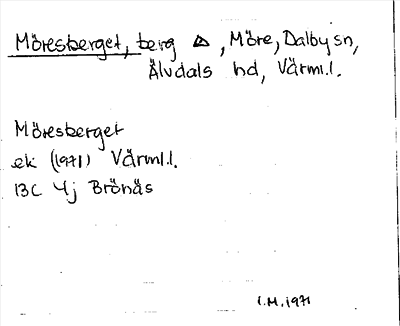 Möresberget, berg △, Möre, Dalby sn,
Älvdals hd, Värml.l.
Möresberget
ek (1971) Värml.l.
13C 4j Brönäs
I.M. 1971